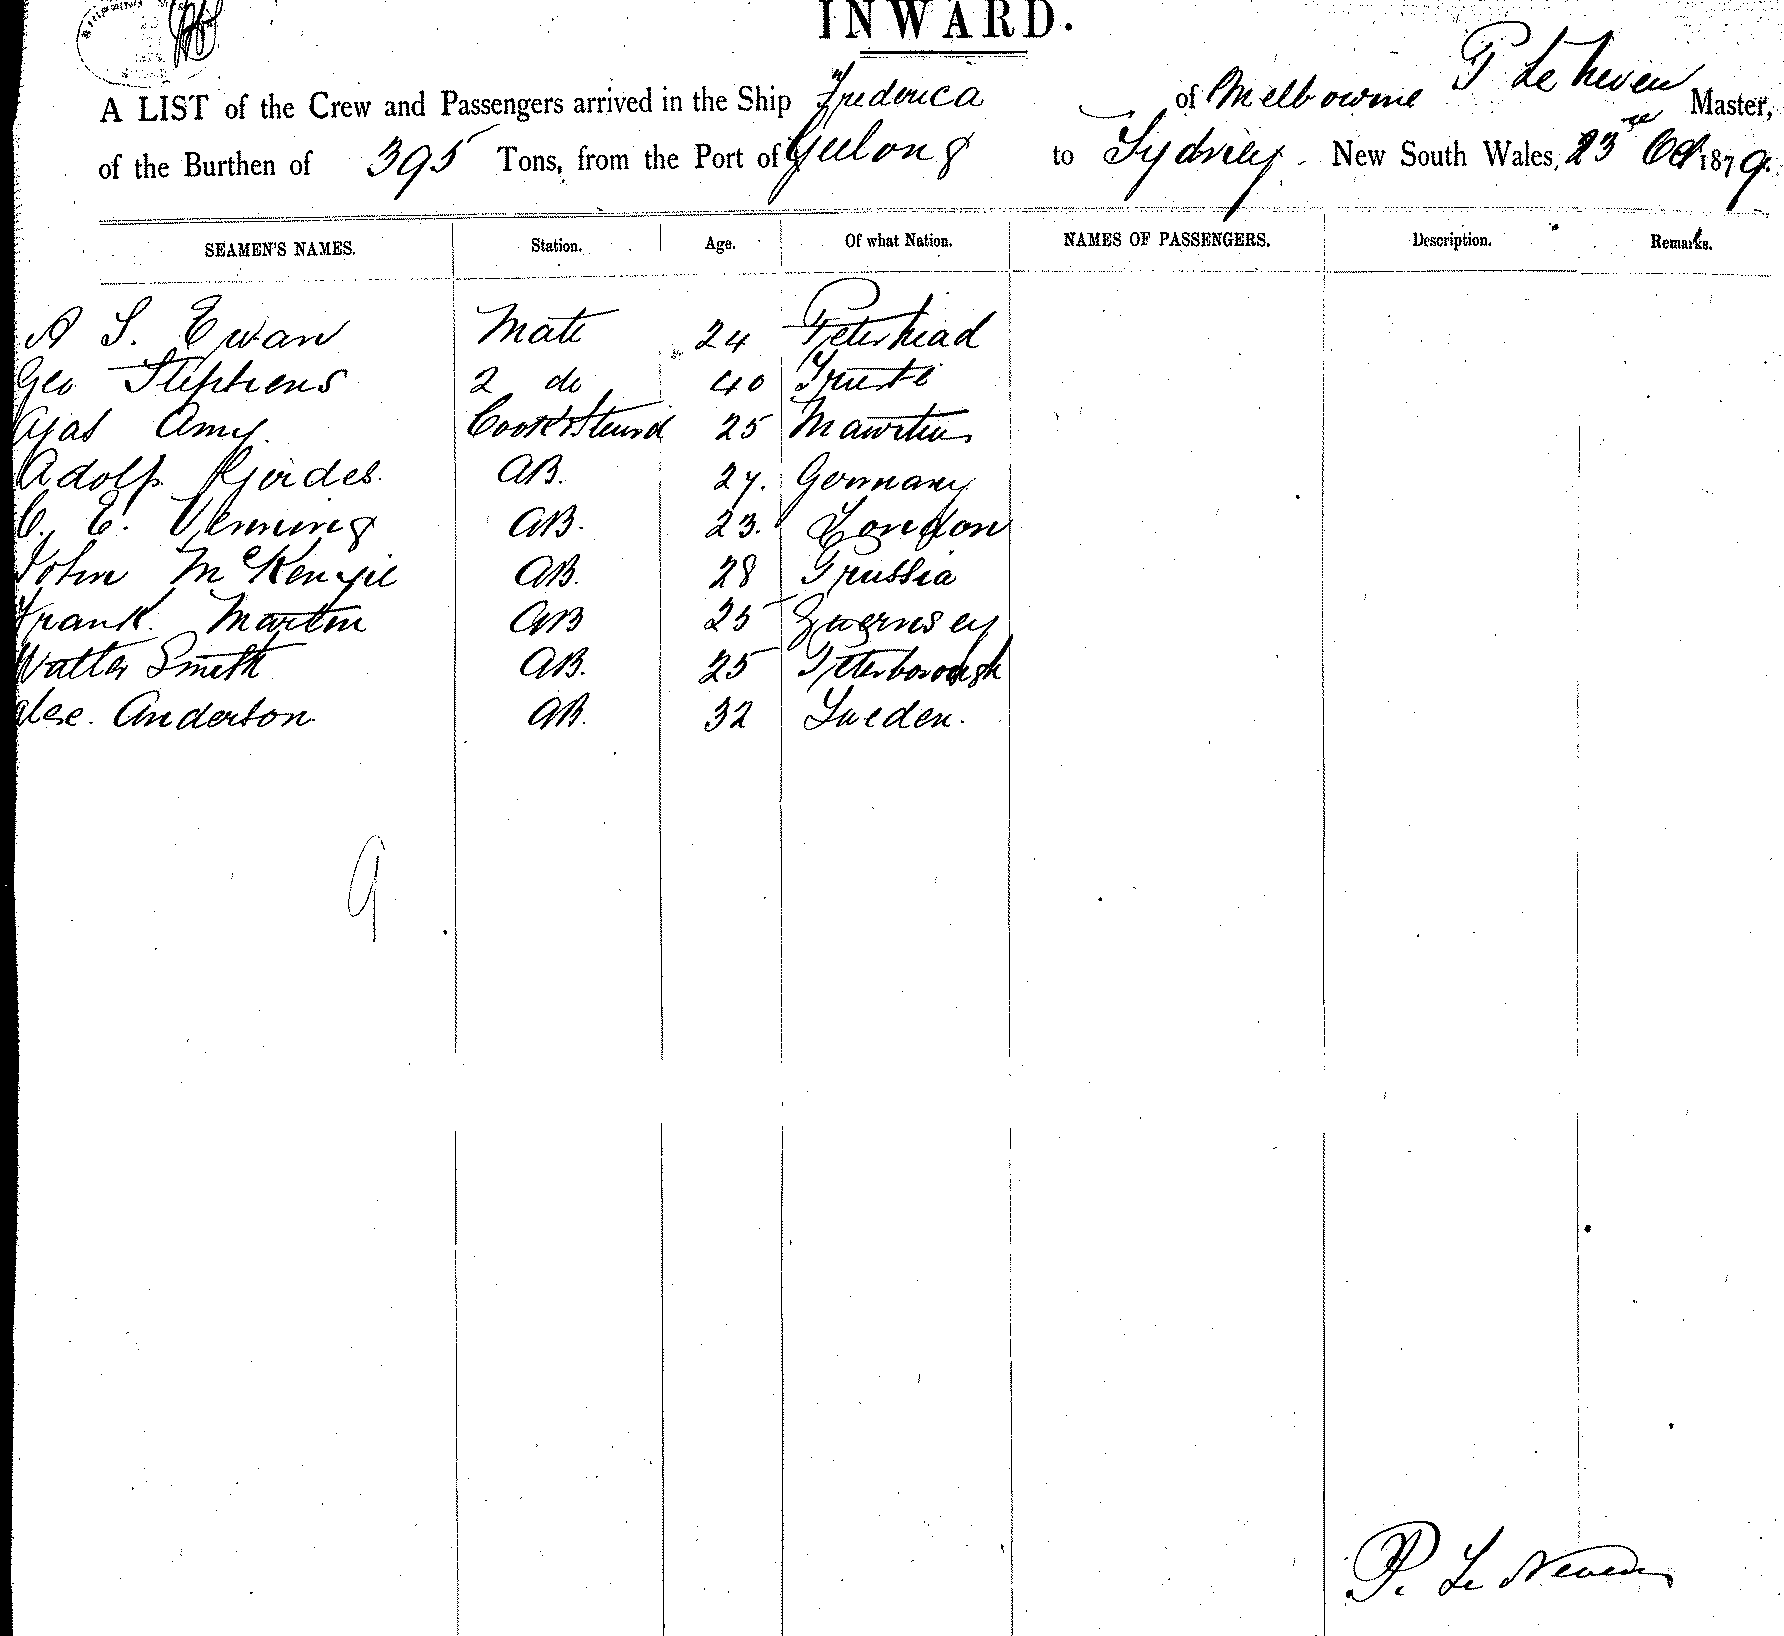 INWARD.
A LIST of the Crew and Passengers arrived in the Ship Frederica of Melbourne P Le Neven Master,
of the Burthen of 395 Tons, from the Port of Geelong to Sydney. New South Wales, 23rd Oct 1879.
SEAMEN'S NAMES. Station. Age. Of what Nation. NAMES OF PASSENGERS. Description. Remarks.
A S. Ewan Mate 24 Peterhead
Geo Stephens 2 do 40 Trieste
Amy Cook & Steward 25 Mauritius
Adolf Gerdes AB. 27. Germany
C. E. Venning AB. 23. London
John McKenzie AB. 28 Prussia
Frank Martin AB 25 Guernsey
Walter Smith AB. 25 Peterborough
Alex. Anderson AB. 32 Sweden.
9
P. Le Neven